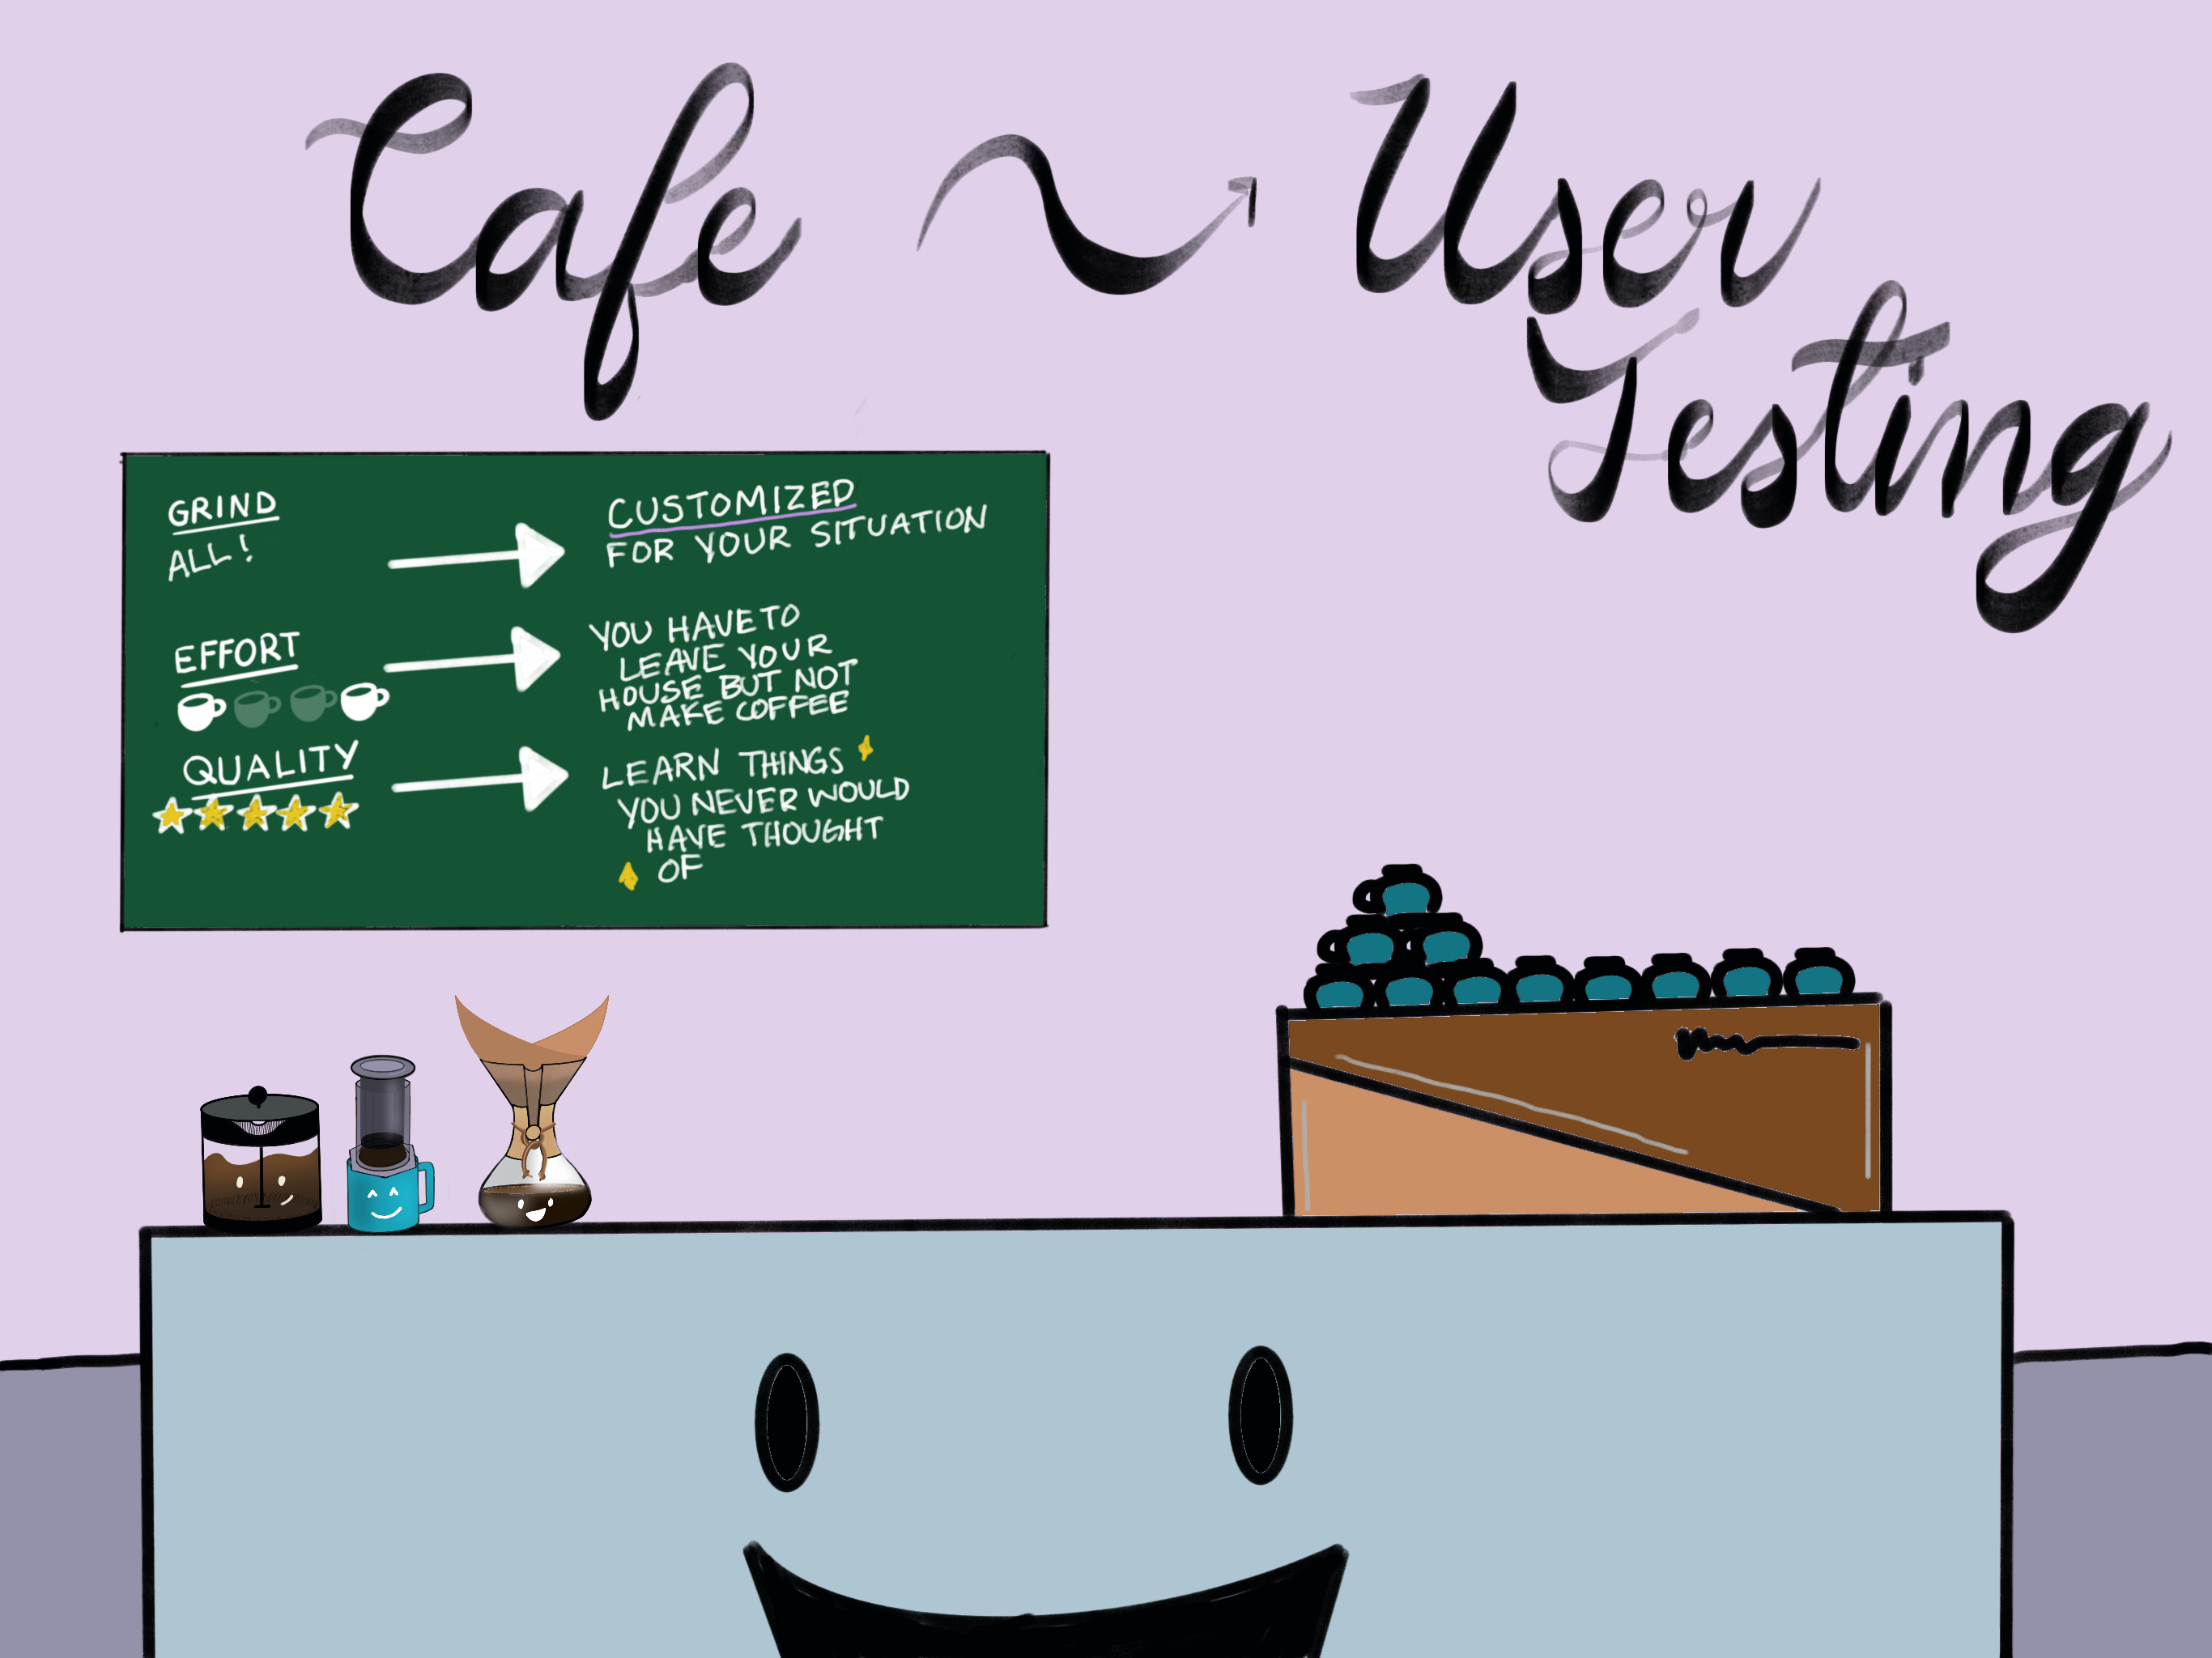 Cafe
User
Testing
GRIND
ALL!
CUSTOMIZED
FOR YOUR SITUATION
EFFORT
YOU HAVE TO
LEAVE YOUR
HOUSE BUT NOT
MAKE COFFEE
QUALITY
LEARN THINGS
YOU NEVER WOULD
HAVE THOUGHT
OF